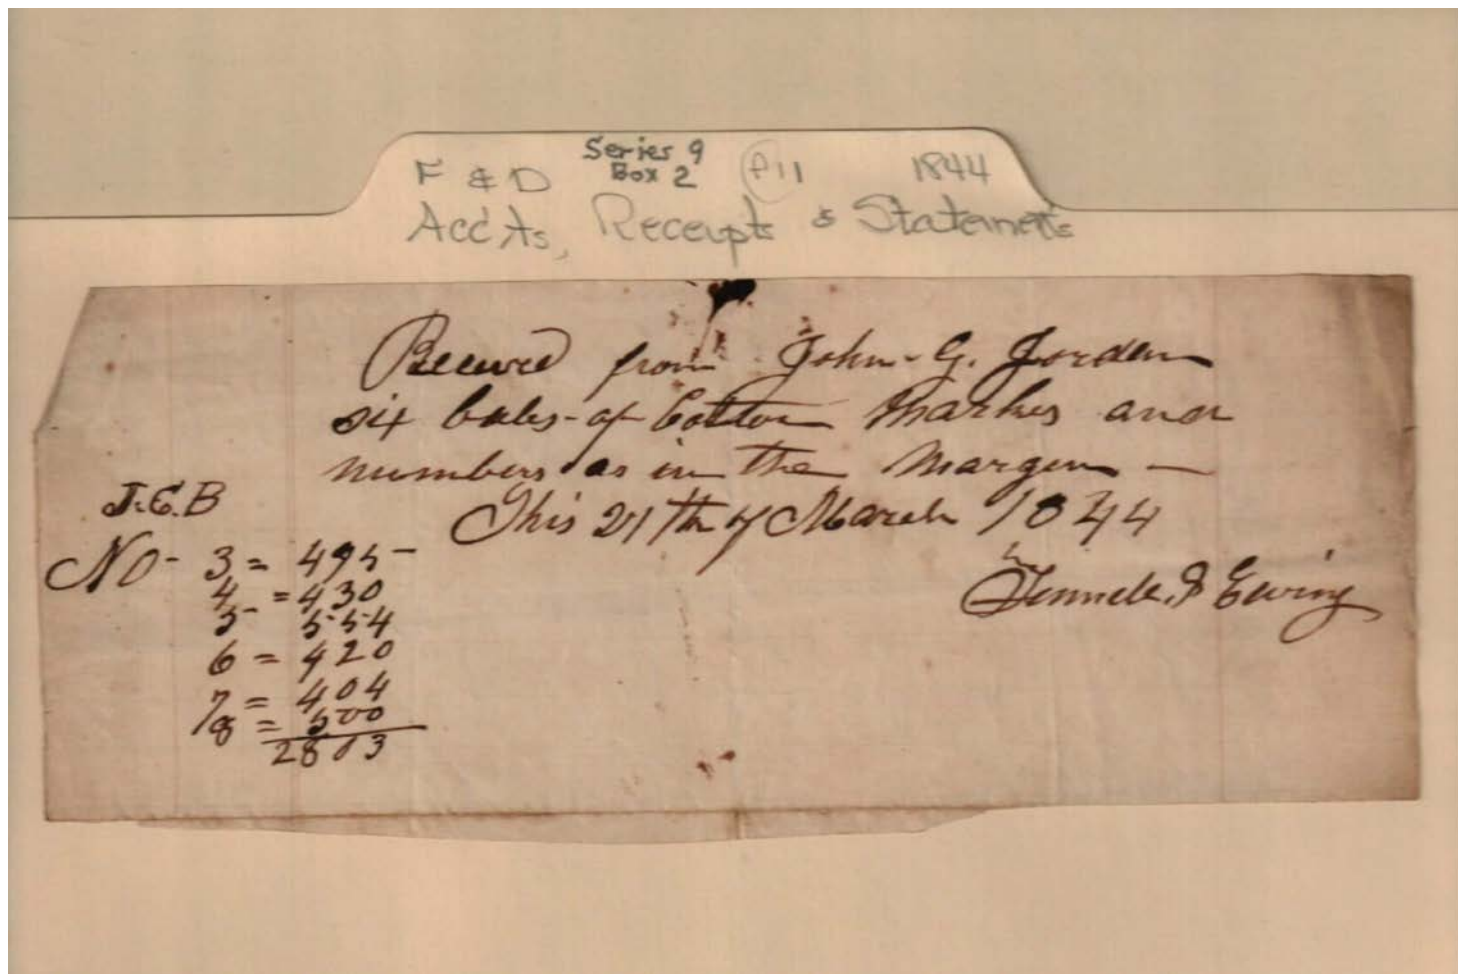 Series 9
F & D Box 2 P11 1844
Acc'ts, Receipts & Statements
Receved from John G. Jorden
six bales of Cotton Markes and
numbers as in the Margen —
J.C.B
This 21th of March 1844
No - 3 = 495 -
4 = 430
& Ewing
5 - 554
6 = 420
7 = 404
8 = 500
2803